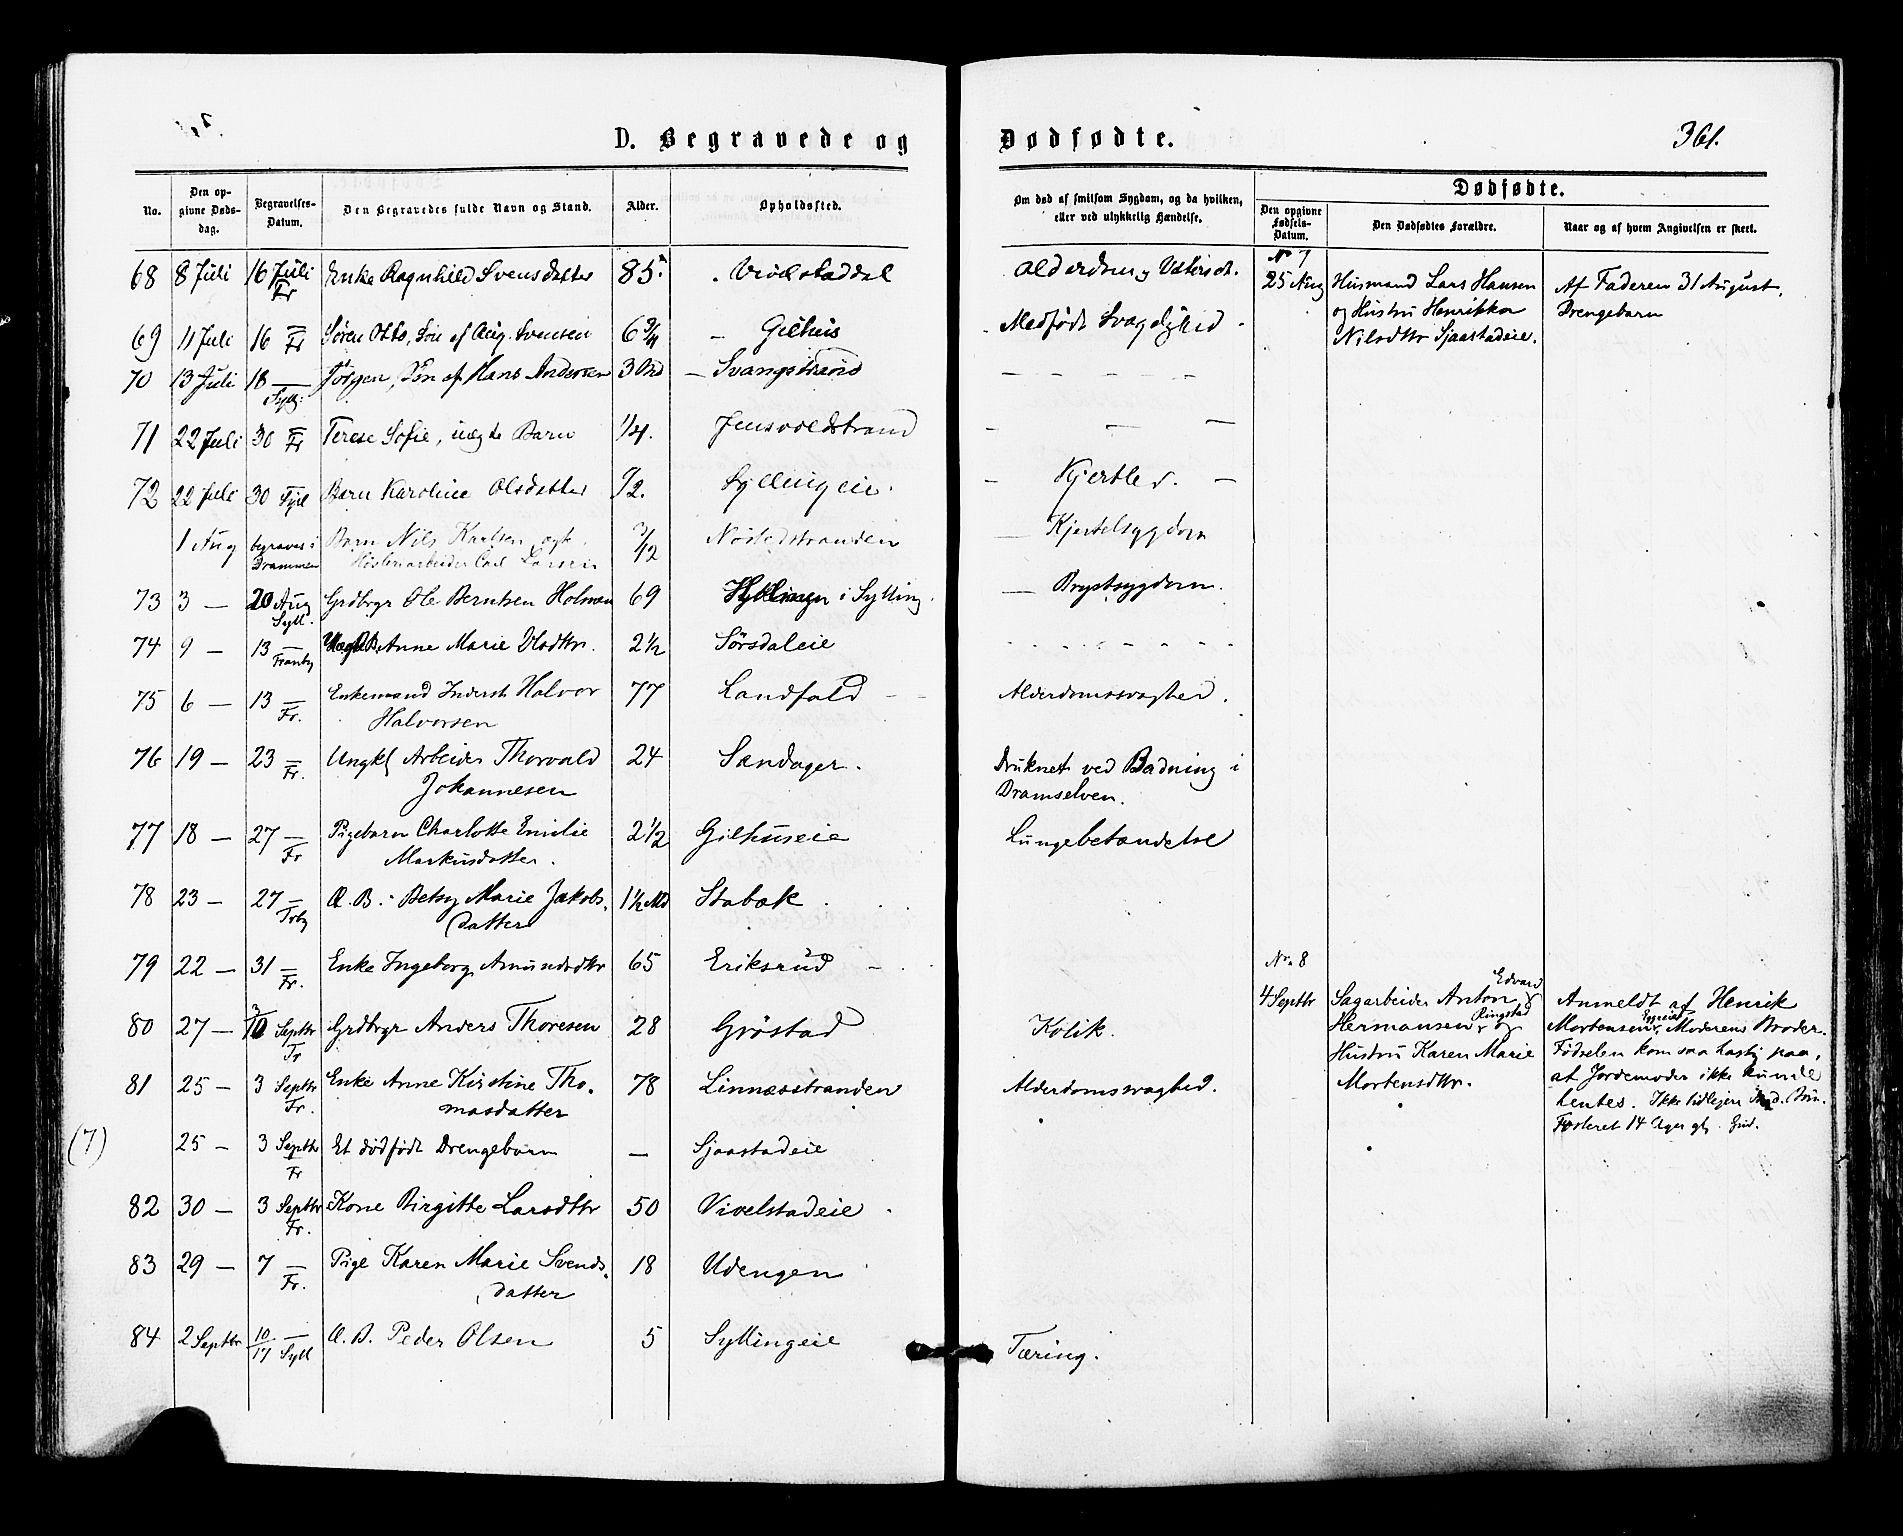 D. Begravede og Dødfødte. 361.
No. Den opgivne Dødsdag. Begravelses-Datum. Den Begravedes fulde Navn og Stand. Alder. Opholdssted. Om død af smitsom Sygdom, og da hvilken, eller ved ulykkelig Hændelse. Dødfødte. Den opgivne Fødsels-Datum. Den Dødfødtes Forældre. Naar og af hvem Angivelsen er skeet.
68 8 Juli 16 Juli Fr Enke Ragnhild Svensdatter 85 Vivelstaddal
69 11 Juli 16 — Fr Søren Otto, Søn af Aug. Svensen 6 3/4 — Gilhus Medfødt Svaghed
70 13 Juli 18 — Syll: Jørgen, Søn af Hans Andersen 3 — Svangstrand — — — — —
71 22 Juli 30 — Fr Terese Sofie, uægte Barn 1/4. Jensvoldstrand — — —
72 22 Juli 30 Barn Karoline Olsdatter Syllingeie. — —
1 Aug begraves i Drammen Barn Nils Karlsen Carl Larsen Nøstedstranden — Kjertelsygdom
73 3 — 20 Aug Syll. Grdbrgr Ole Berntsen Holmen 69 i Sylling. — Brystsygdom.
74 9 — 13 — Franby Anne Marie 2 1/2 Sørsdaleie
75 6 — 13 — Fr. Enkemand Inderst Halvor 77 Landfald Alderdomssvaghed.
Halvorsen
76 19 — 23 — Fr. Ungkl Arbeider Thorvald 24 Sandager. Druknet ved Badning i
Johannesen Dramselven.
77 18 — 27 — Fr Pigebarn Charlotte Emilie 2 1/2 Gilhuseie Lungebetændelse
Markusdatter.
78 23 — 27 — Æ. B. Betsy Marie Jakobs- 1 1/2 Md Stabæk
datter
79 22 — 31 — Fr. Enke Ingeborg Amundsdtr 65 Eriksrud
80 27 — Septbr Fr Grdbrgr Anders Thoresen 28 Grøstad Kolik.
81 25 — 3 Septbr Fr. Enke Anne Kirstine Tho- 78 Linnæsstranden Alderdomssvaghed.
masdatter
(7) 25 — 3 Septbr Fr Et dødfødt Drengebarn — Sjaastadeie
82 30 — 3 Septbr Fr. Kone Birgitte Larsdtr 50 Vivelstadeie
83 29 — 7 — Fr. Pige Karen Marie Svends- 18 Udengen
datter
84 2 Septbr 10/17 — Syll Æ. B. Peder Olsen 5 Syllingeie Tæring.
No 7
25 Aug Husmand Lars Hansen Af Faderen 31 August.
og Hustru Henrikka Drengebarn
Nilsdtr Sjaastadeie.
No 8
Edvard
4 Septbr Sagarbeider Anton Anmeldt af Henrik
Ringstad
Hermansen og Mortensen, Moderens Broder.
Hustru Karen Marie Fødselen kom saa hastig paa,
Mortensdtr. at Jordemoder ikke kunde
hentes. Ikke tidligere
Fosteret 14 Uger